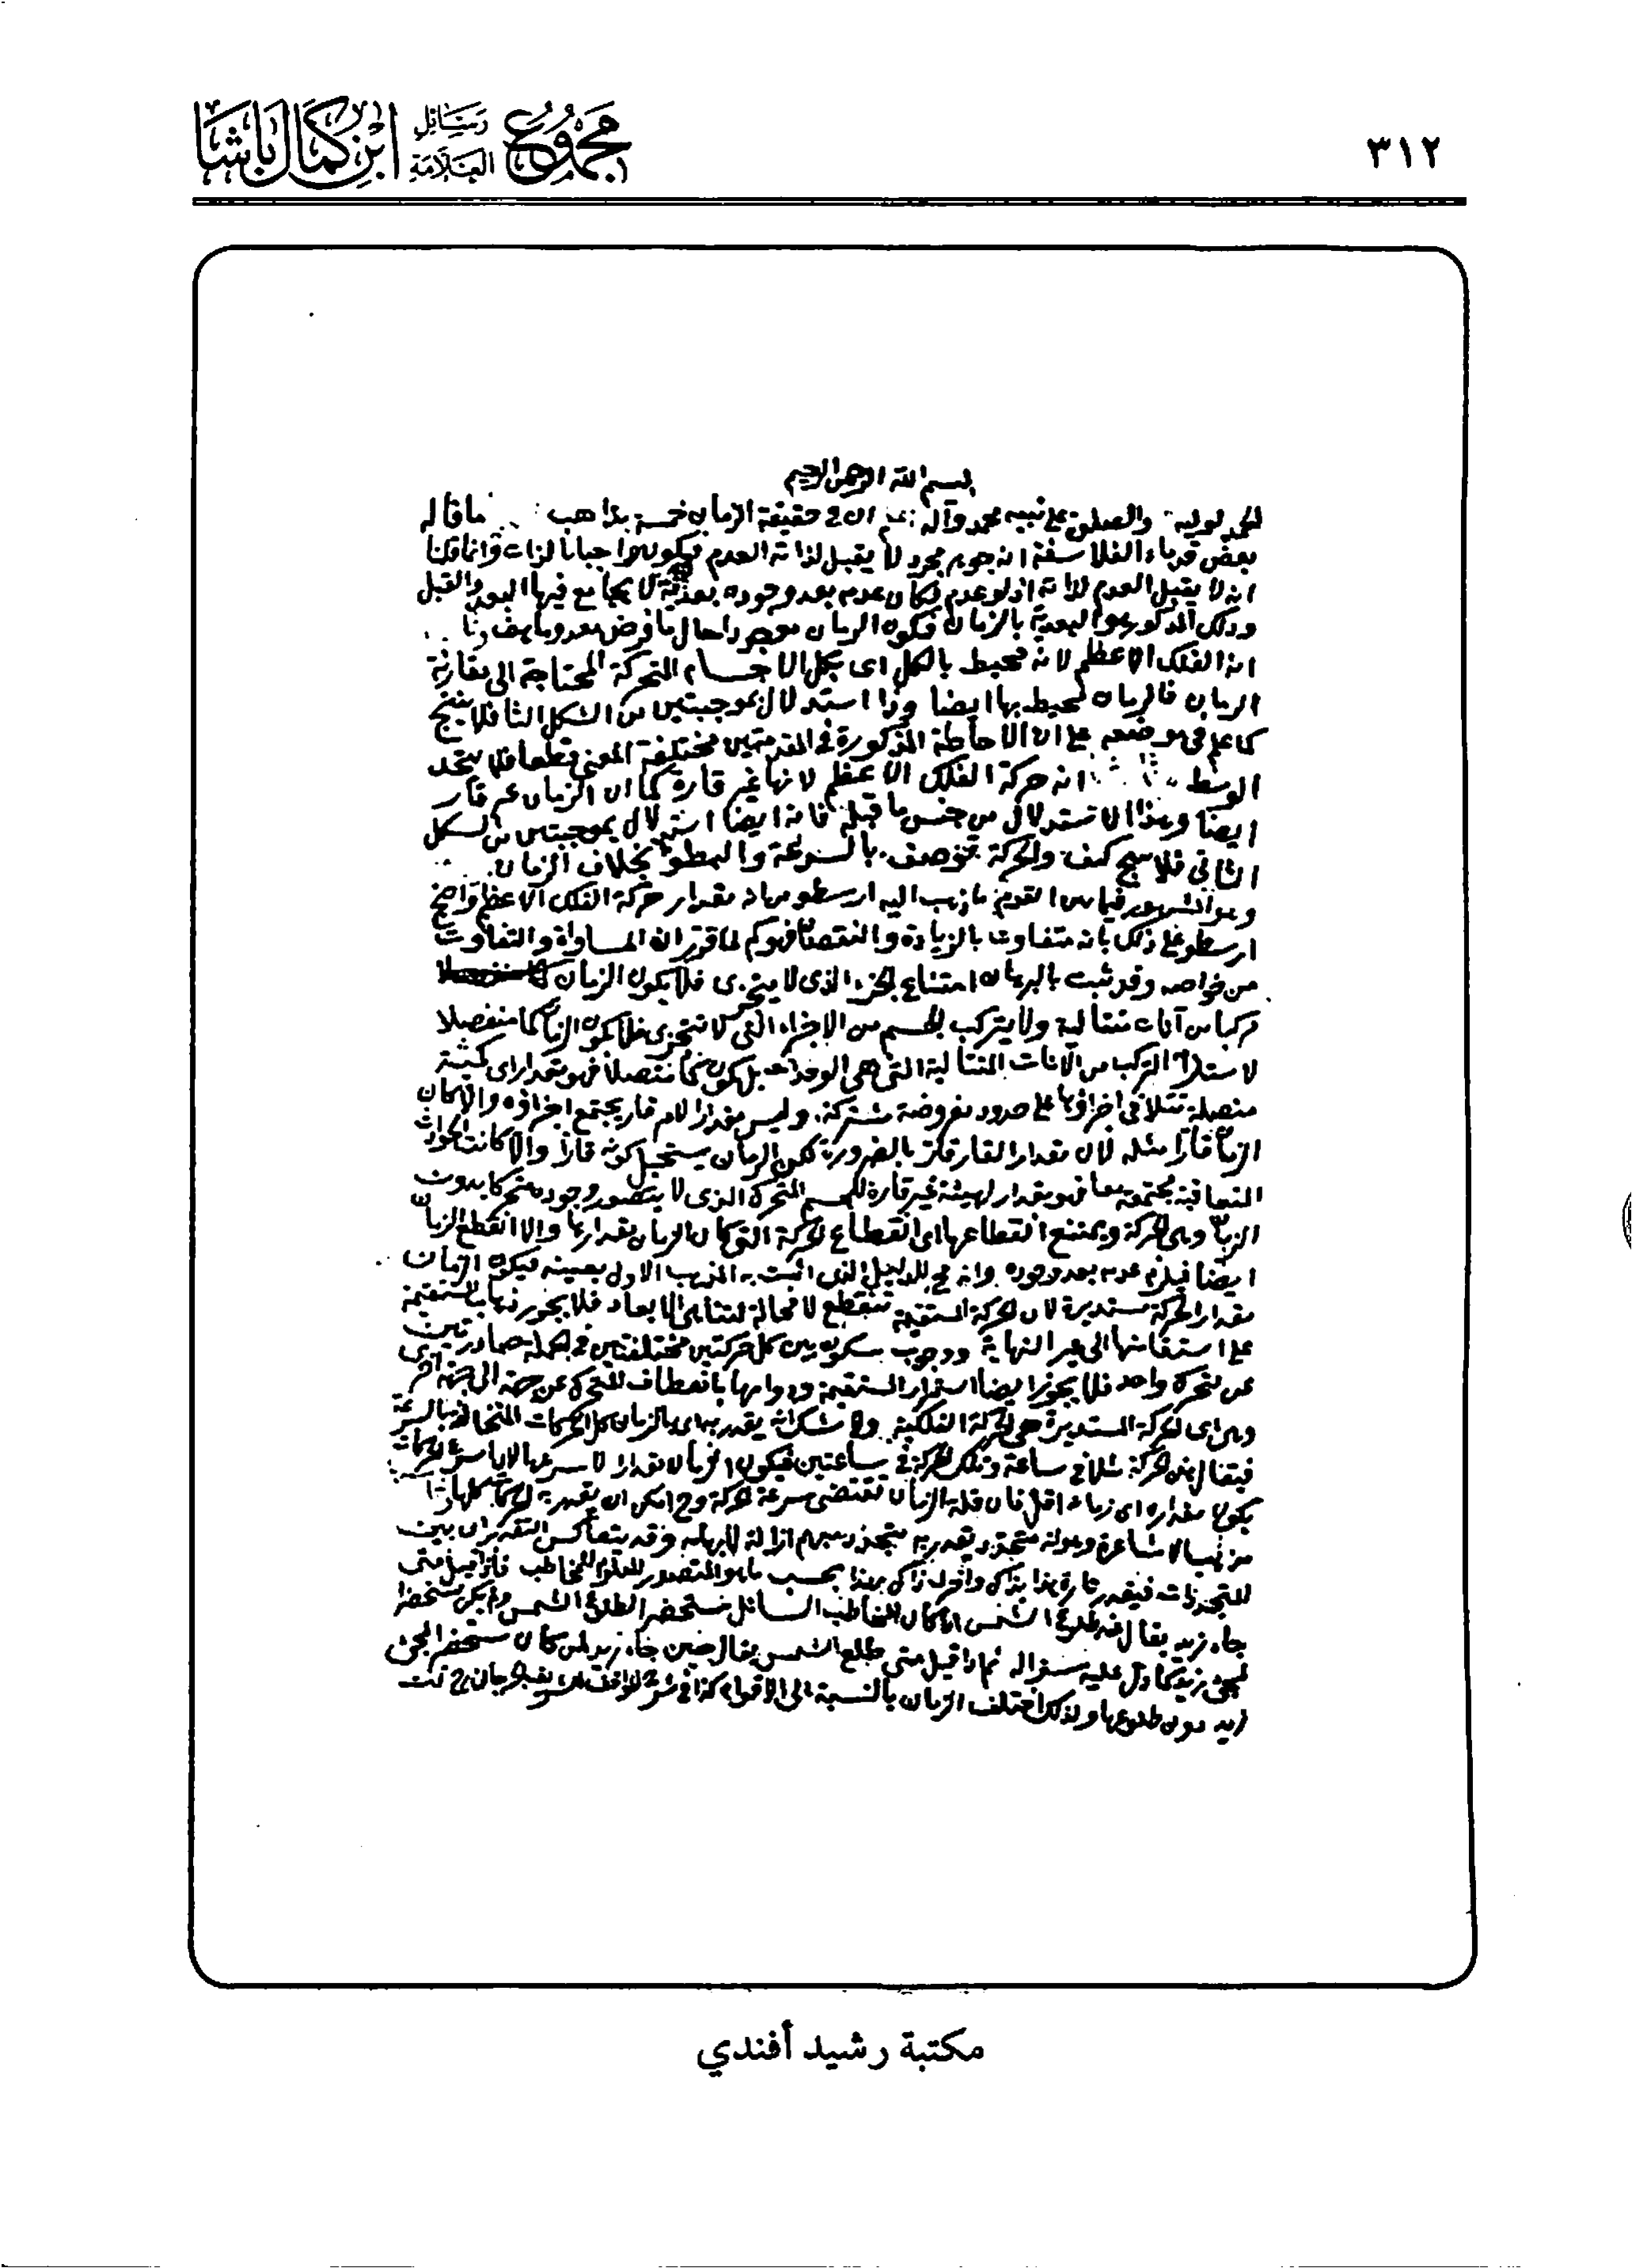 ٣١٢
مجموع رسائل العلامة ابن كمال باشا
بسم الله الرحمن الرحيم
الحمد لوليه والصلوة على نبيه محمد وآله اعلم ان في حقيقة الزمان خمسة مذاهب ما قاله
بعض قدماء الفلاسفة انه جوهر مجرد لا يقبل لذاته العدم فيكون واجبا بالذات وانما قلنا
انه لا يقبل العدم لذاته اذ لو عدم لكان عدمه بعد وجوده بعدية لا يجامع فيها البعد والقبل
وذلك المذكور هو البعدية بالزمان فيكون الزمان موجودا حال ما فرض معدوما هف
انه الفلك الاعظم لانه محيط بالكل اى بكل الاجسام المتحركة المحتاجة الى مقارنة
الزمان فالزمان محيط بها ايضا وهذا استدلال بموجبتين من الشكل الثا فلا ينتج
كما علم فى موضعه على ان الاحاطة المذكورة فى المقدمتين مختلفة المعنى قطعا فلا يتحد
الوسط انه حركة الفلك الاعظم لانها غير قارة كما ان الزمان غير قار
ايضا وهذا الاستدلال من جنس ما قبله فانه ايضا استدلال بموجبتين من الشكل
الثانى فلا ينتج كيف والحركة توصف بالسرعة والبطوء بخلاف الزمان
وهو المشهور فيما بين القوم ما ذهب اليه ارسطو من انه مقدار حركة الفلك الاعظم واحتج
ارسطو على ذلك بانه متفاوت بالزيادة والنقصان فهو كم لما تقرر ان المساواة والتفاوت
من خواصه وقد ثبت بالبرهان امتناع الجزء الذى لا يتجزى فلا يكون الزمان
مركبا من آنات متتالية ولا يتركب الجسم من الاجزاء التى لا تتجزى فلا يكون الزمان كما منفصلا
لاستلزامه التركب من الآنات المتتالية التى هى الوحدات بل يكون كما متصلا فهو مقدار اى كمية
متصلة تتلاقى اجزاؤها على حدود مفروضة مشتركة وليس مقدارا لامر قار يجتمع اجزاؤه والا كان
الزمان قارا مثله لان مقدار القار قار بالضرورة لكن الزمان يستحيل كونه قارا والا كانت الحوادث
المتعاقبة مجتمعة معا فهو مقدار لهيئة غير قارة للجسم المتحرك الذى لا يتصور وجوده متحركا بدون
الزمان وهى الحركة ويمتنع انقطاعها اى انقطاع الحركة التى كان الزمان مقدارها والا انقطع الزمان
ايضا فيلزم عدمه بعد وجوده وانه مح للدليل الذى اثبت به المذهب الاول بعينه فيكون الزمان
مقدارا لحركة مستديرة لان الحركة المستقيمة تنقطع لا محالة لتناهى الابعاد فلا يجوز ذهاب المستقيمة
على استقامتها الى غير النهاية ووجوب سكون بين كل حركتين مختلفتين فى الجملة صادرتين
عن متحرك واحد فلا يجوز ايضا استمرار المستقيمة ودوامها بانعطاف المتحرك عن جهة الى جهة اخرى
وهى اى الحركة المستديرة هى الحركة الفلكية ولا شك انه يقدر به اى بالزمان كل الحركات المتخالفة بالسرعة
فيقال هذه الحركة مثلا فى ساعة وتلك الحركة فى ساعتين فيكون الزمان مقدارا لاسرعها
يكون مقداره اى زمانه اقل فان قلة الزمان تقتضى سرعة الحركة وح امكن ان يقدر به الحركات كلها
مذهب الاشاعرة وهو انه متجدد يقدر به متجدد مبهم ازالة لابهامه وقد يتعاكس التقدير بين
المتجددات فيقدر تارة هذا بذاك واخرى ذاك بهذا بحسب ما هو المتصور المعلوم للمخاطب فاذا قيل متى
جاء زيد يقال عند طلوع الشمس ان كان المخاطب السائل مستحضرا لطلوع الشمس ولم يكن مستحضرا
لمجئ زيد كما دل عليه سؤاله ثم اذا قيل متى طلع الشمس يقال حين جاء زيد لمن كان مستحضرا لمجئ
زيد دون طلوعها ولذلك اختلف الزمان بالنسبة الى الاقوام كذا فى شرح المواقف
مكتبة رشيد أفندي